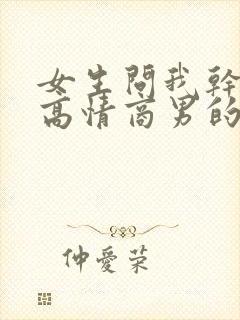 女生問我幹
高情商男的
仲愛荣